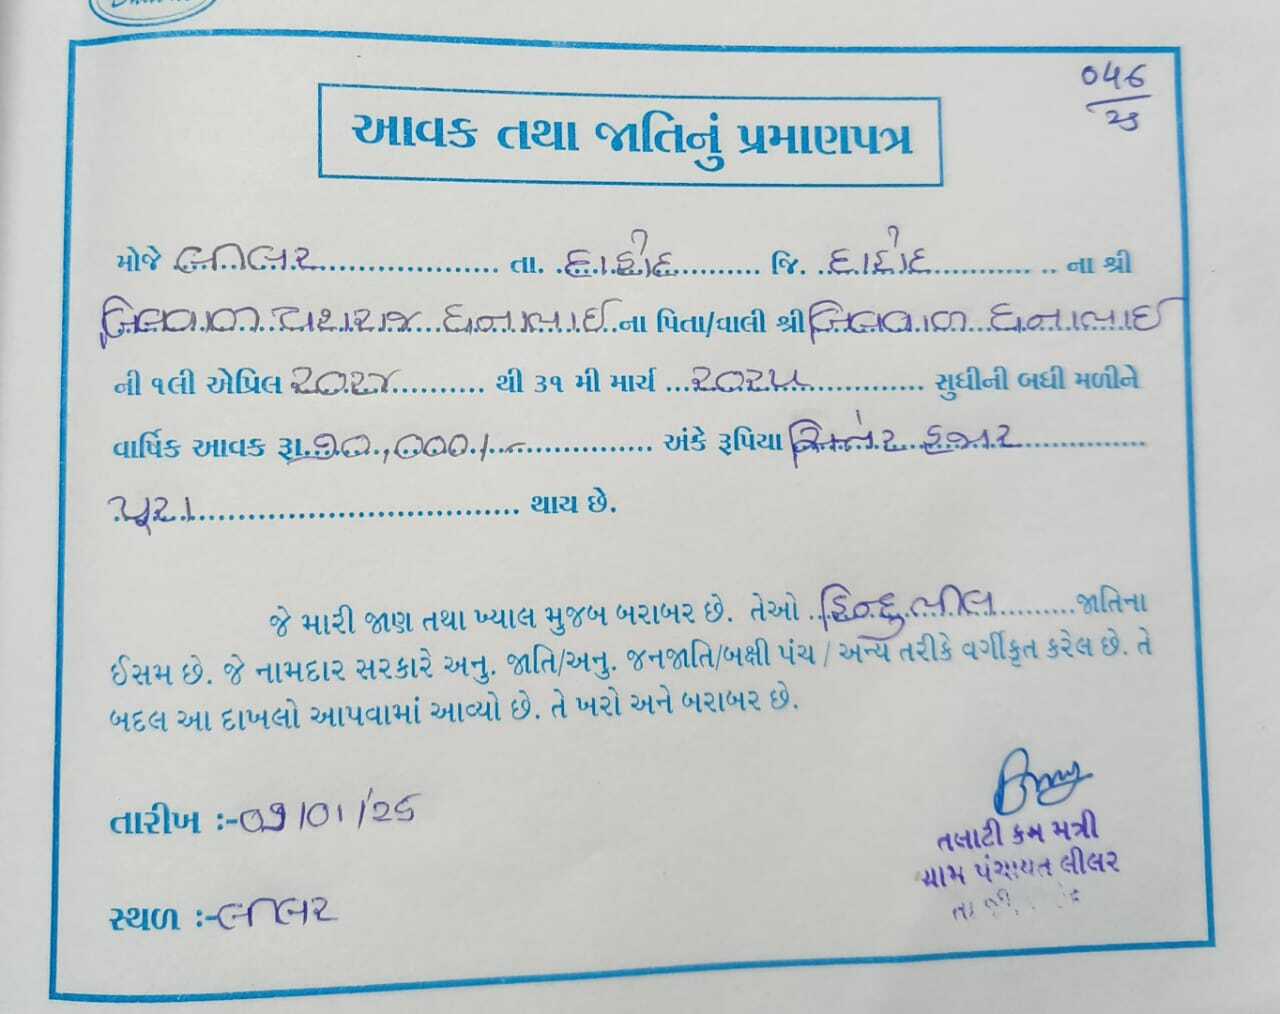 ૦૫૬
૨૬
આવક તથા જાતિનું પ્રમાણપત્ર
મોજે લીલર તા. દાહોદ જિ. દાહોદ ના શ્રી
બિલવાળ યશરાજ ધનાભાઈ ના પિતા/વાલી શ્રી બિલવાળ ધનાભાઈ
ની ૧લી એપ્રિલ ૨૦૨૪ થી ૩૧ મી માર્ચ ૨૦૨૫ સુધીની બધી મળીને
વાર્ષિક આવક રૂા. ૭૦,૦૦૦/- અંકે રૂપિયા સિત્તેર હજાર
પૂરા થાય છે.
જે મારી જાણ તથા ખ્યાલ મુજબ બરાબર છે. તેઓ હિન્દુ ભીલ જાતિના
ઈસમ છે. જે નામદાર સરકારે અનુ. જાતિ/અનુ. જનજાતિ/બક્ષી પંચ / અન્ય તરીકે વર્ગીકૃત કરેલ છે. તે
બદલ આ દાખલો આપવામાં આવ્યો છે. તે ખરો અને બરાબર છે.
તારીખ :- ૦૭/૦૧/૨૬
તલાટી કમ મંત્રી
ગ્રામ પંચાયત લીલર
સ્થળ :- લીલર